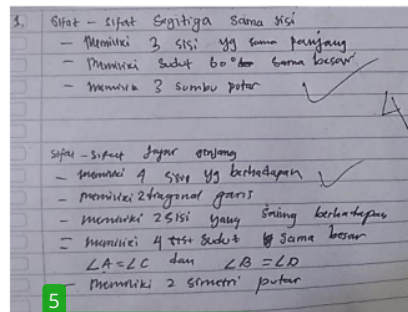 1. Sifat - sifat Segitiga Sama sisi
- Memiliki 3 sisi yg sama panjang
- Memiliki sudut 60° sama besar
- Memiliki 3 sumbu putar
4
Sifat - sifat Jajar genjang
- memiliki 4 yg berhadapan
- memiliki 2 diagonal garis
- memiliki 2 sisi yang saling berhadapan
- memiliki 4 sudut sama besar
∠A = ∠C dan ∠B = ∠D
- Memiliki 2 simetri putar
5